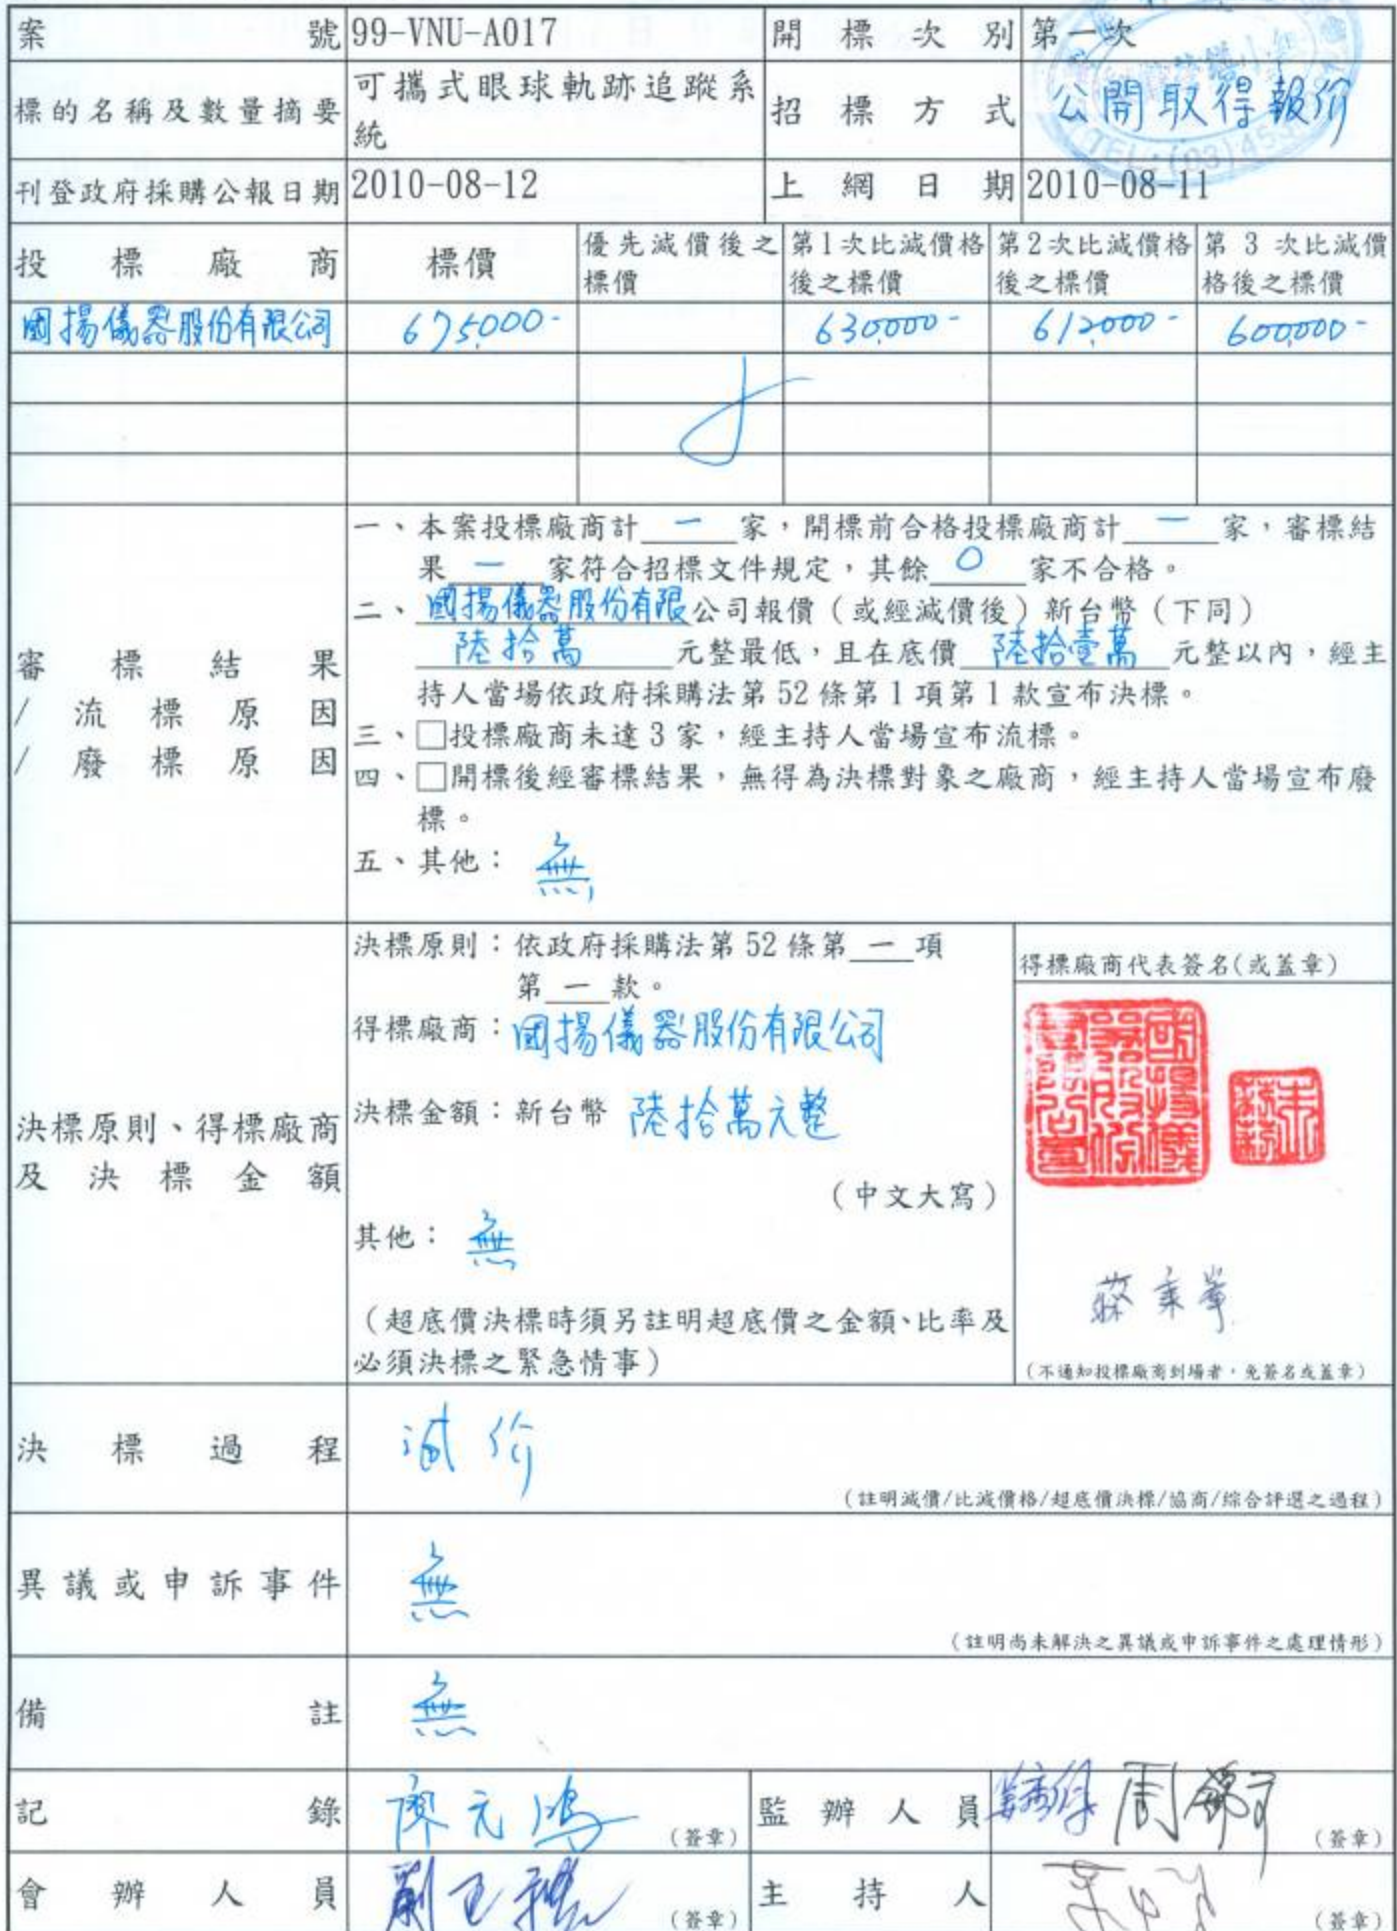 案號 99-VNU-A017 開標次別 第一次
標的名稱及數量摘要 可攜式眼球軌跡追蹤系統 招標方式 公開取得報价
TEL:(03)453
刊登政府採購公報日期 2010-08-12 上網日期 2010-08-11
投標廠商 標價 優先減價後之標價 第1次比減價格後之標價 第2次比減價格後之標價 第 3 次比減價格後之標價
國揚儀器股份有限公司 675,000- 630,000- 612,000- 600,000-
審標結果
/流標原因
/廢標原因
一、本案投標廠商計 一 家,開標前合格投標廠商計 一 家,審標結
果 一 家符合招標文件規定,其餘 0 家不合格。
二、國揚儀器股份有限公司報價(或經減價後)新台幣(下同)
陸拾萬 元整最低,且在底價 陸拾壹萬 元整以內,經主
持人當場依政府採購法第 52 條第 1 項第 1 款宣布決標。
三、□投標廠商未達 3 家,經主持人當場宣布流標。
四、□開標後經審標結果,無得為決標對象之廠商,經主持人當場宣布廢
標。
五、其他:無
決標原則、得標廠商
及決標金額
決標原則:依政府採購法第 52 條第 一 項
第 一 款。
得標廠商:國揚儀器股份有限公司
決標金額:新台幣 陸拾萬元整
(中文大寫)
其他:無
(超底價決標時須另註明超底價之金額、比率及
必須決標之緊急情事)
得標廠商代表簽名(或蓋章)
(不通知投標廠商到場者,免簽名或蓋章)
決標過程 減价
(註明減價/比減價格/超底價決標/協商/綜合評選之過程)
異議或申訴事件 無
(註明尚未解決之異議或申訴事件之處理情形)
備註 無
記錄 廖元鴻 (簽章) 監辦人員 (簽章)
會辦人員 (簽章) 主持人 (簽章)